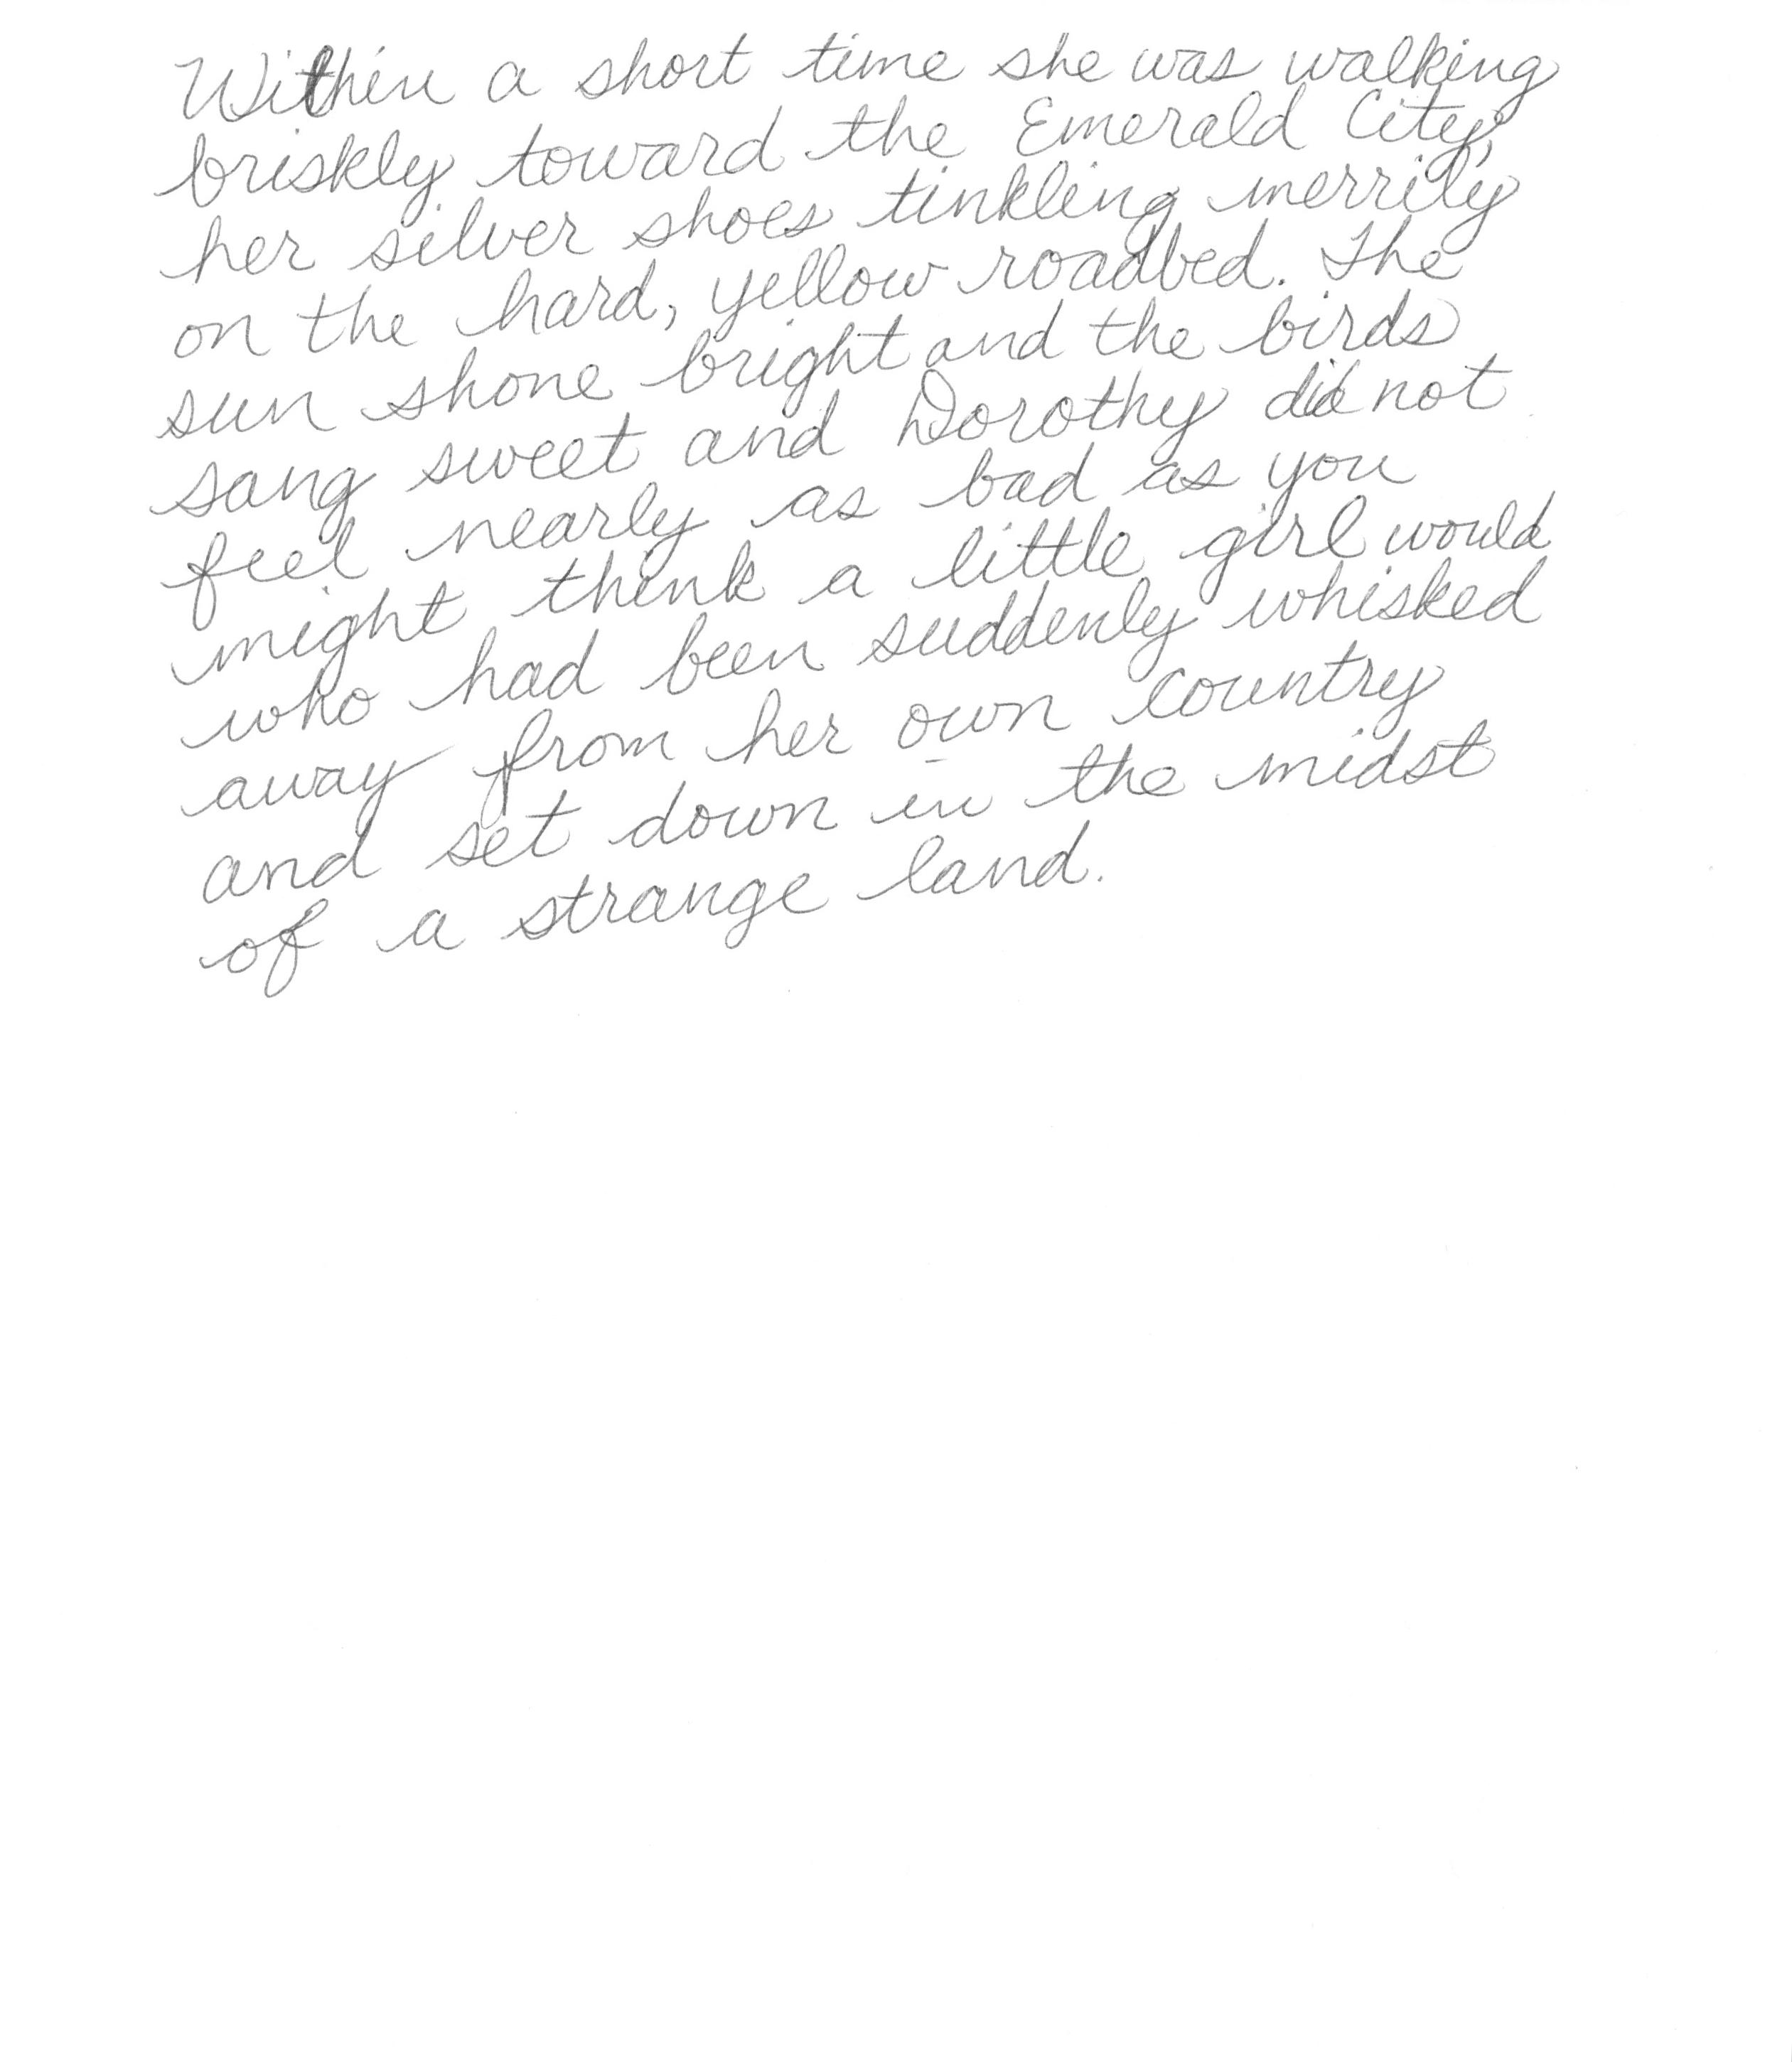 Within a short time she was walking
briskly toward the Emerald City,
her silver shoes tinkling merrily
on the hard, yellow roadbed. The
sun shone bright and the birds
sang sweet and Dorothy did not
feel nearly as bad as you
might think a little girl would
who had been suddenly whisked
away from her own country
and set down in the midst
of a strange land.